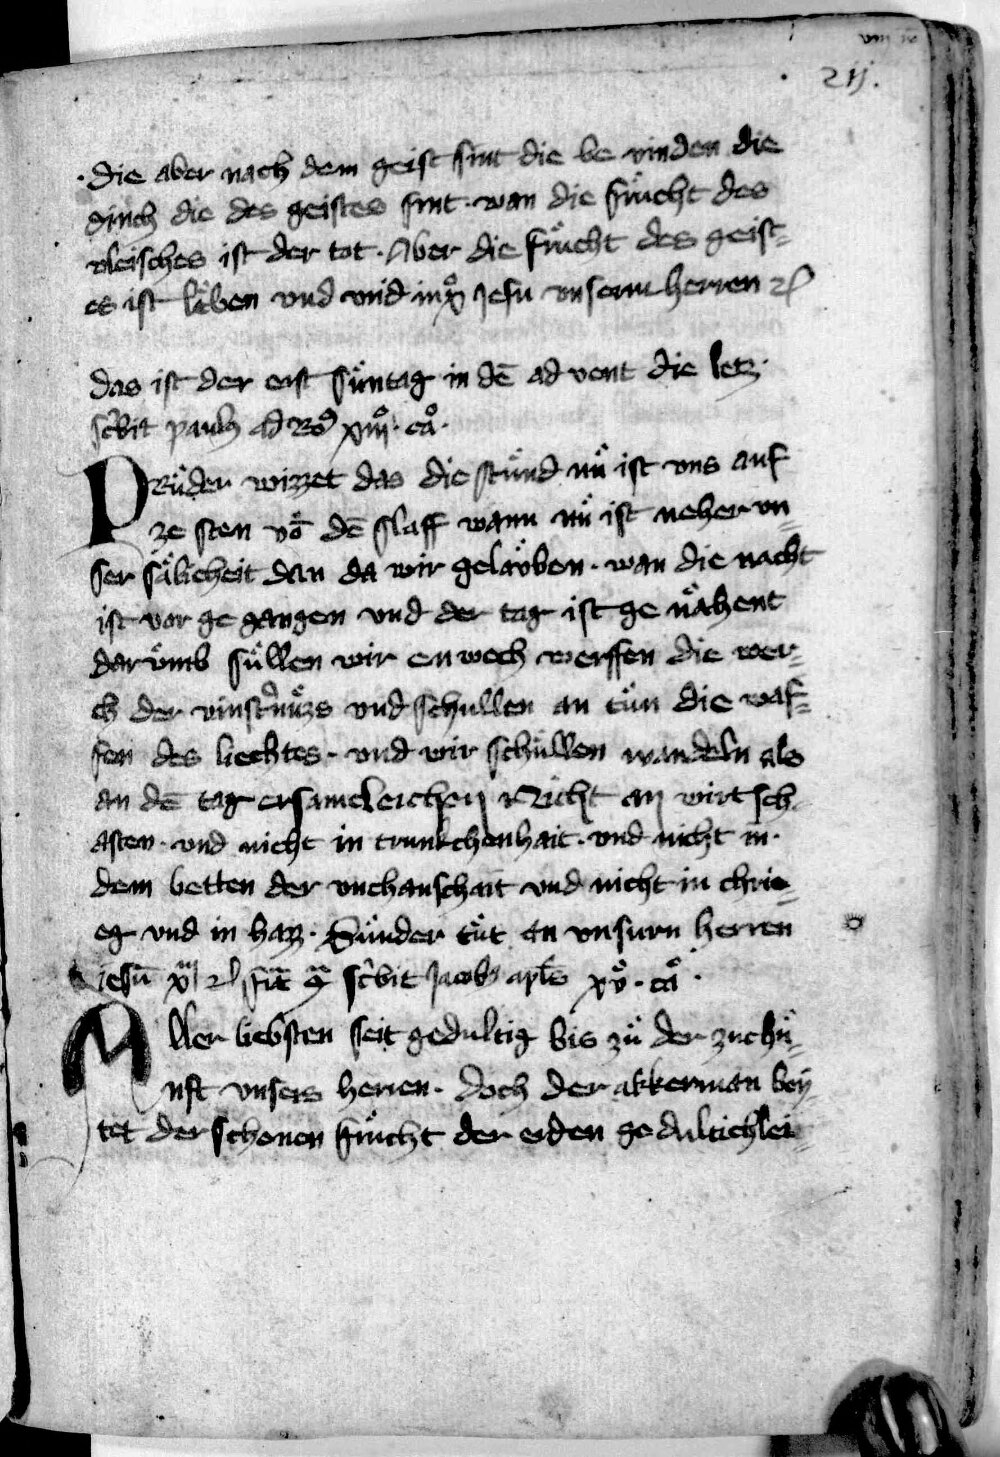 211.
· die aber nach dem geist sint die be vinden die
dinch die des geistes sint · wan die frücht des
vleisches ist der tot · Aber die frücht des geist-
es ist lëben vnd vrid in xͦ Jesu vnserm herren
das ist der erst süntag in dē ad vent die letz ·
sc̄bit paulꝰ ad Roͫ xiiiͦ · caͦ ·
PRüder wizzet das die stünd nü ist vns auf
ze sten vō dē slaff wann nü ist neher vn-
ser sälicheit dan da wir gelaüben · wan die nacht
ist vor ge gangen vnd der tag ist ge nähent
darümb süllen wir en wech werffen die wer-
ch der vinst'nüzs vnd schullen an tün die waf-
fen des liechtes · vnd wir schüllen wandeln als
an dē tag ersamcleichen Nicht an wirtsch-
aften · vnd nicht in trunkchenhait · vnd nicht in ·
dem betten der vnchauschait vnd nicht in chrie-
eg vnd in hazz · Sünder tüt an vnsurn herren
jesū sc̄bit Jacobꝰ apl̄s vͦ · caͦ ·
Aller liebsten seit gedultig bis zü der zuchü-
nft vnsers herren · doch der akkerman bey-
tet der schonen frücht der erden gedultichlei-